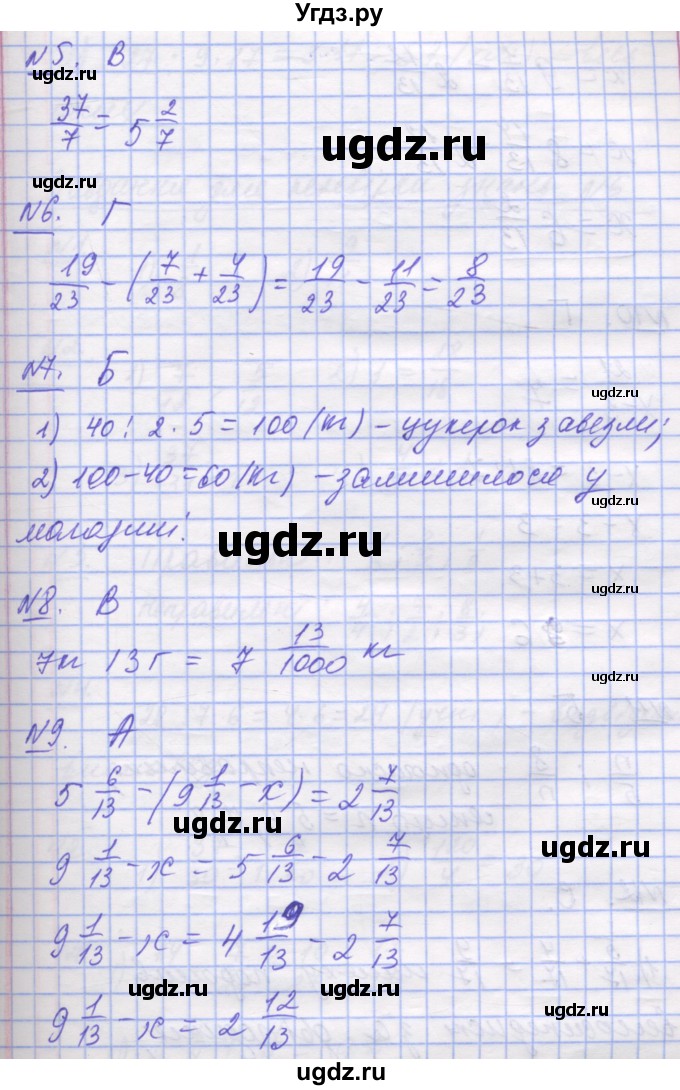 Угдз.ру
№5. В
ugdz.ru
37/7 = 5 2/7
ugdz.ru
ugdz.ru
№6. Г
19/23 - (7/23 + 4/23) = 19/23 - 11/23 = 8/23
№7. Б
ugdz.ru
1) 40 : 2 · 5 = 100 (кг) - цукерок завезли;
2) 100 - 40 = 60 (кг) - залишилося у
магазині.
ugdz.ru
ugdz.ru
№8. В
7кг 13г = 7 13/1000 кг
№9. А
5 6/13 - (9 1/13 - х) = 2 7/13
ugdz.ru
ugdz.ru
9 1/13 - х = 5 6/13 - 2 7/13
9 1/13 - х = 4 19/13 - 2 7/13
ugdz.ru
ugdz.ru
9 1/13 - х = 2 12/13
ugdz.ru